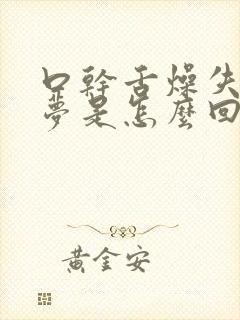 口幹舌燥失
夢是怎麼回
黃金安